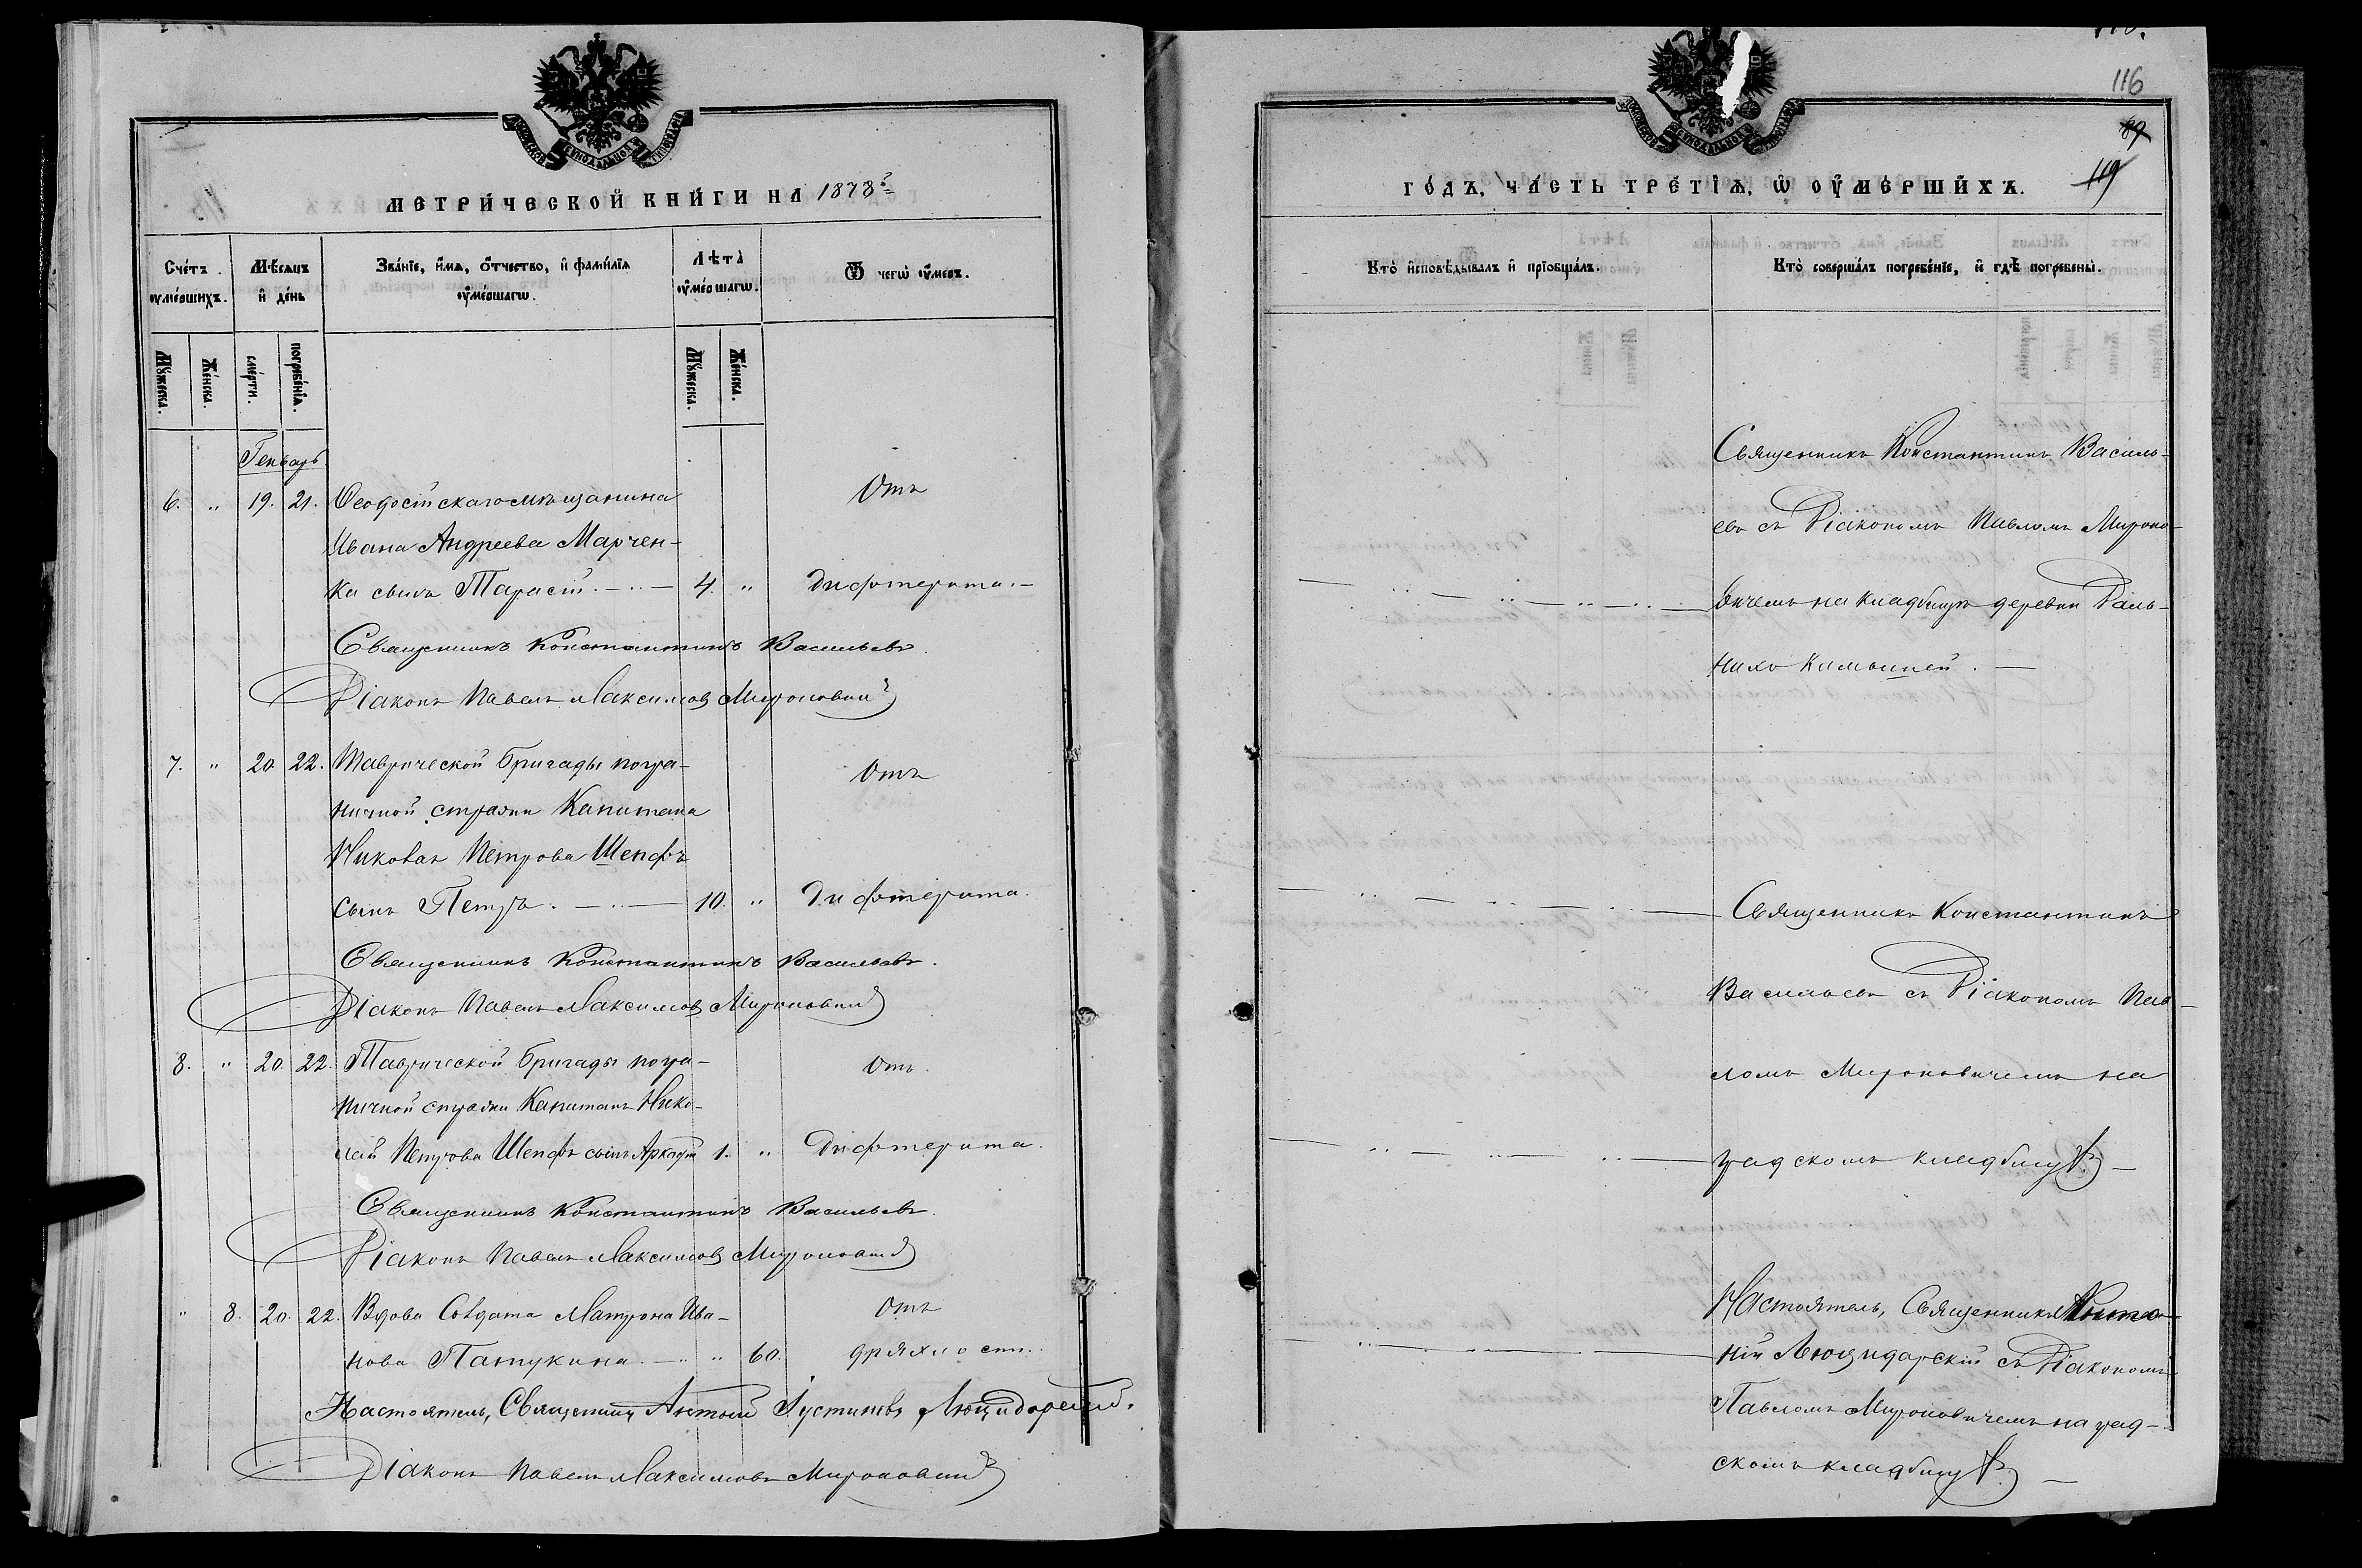 МЕТРИ́ЧЕСКОЙ КНИ́ГИ НА 1878й
Сче́тъ ᲂу҆ме́ршихъ.
Мѣ́сяцъ и҆ де́нь
Зва́нїе, и҆́мя, ѻ҆́тчество, и҆ фами́лїя ᲂу҆ме́ршагѡ.
Лѣта̀ ᲂу҆ме́ршагѡ.
Ѿ чегѡ̀ ᲂу҆́меръ.
Мꙋ́жеска.
Же́нска.
сме́рти.
погребе́нїѧ.
Мꙋ́жеска.
Же́нска.
Генварь
6. " 19. 21. Ѳеодосійскаго мѣщанина Отъ
Ивана Андреева Марчен-
ка сынъ Тарасій. 4. " Дифтерита.
Священникъ Константинъ Васильевъ.
Діаконъ Павелъ Максимовъ Мироновичъ
7. " 20 22. Таврической бригады погра- Отъ
ничной стражи Капитана
Николая Петрова Шенфъ
сынъ Петръ. 10. " Дифтерита.
Священникъ Константинъ Васильевъ.
Діаконъ Павелъ Максимовъ Мироновичъ
8. " 20. 22. Таврической бригады погра- Отъ
ничной стражи Капитанъ Нико-
лай Петрова Шенфъ сынъ Аркадій 1. " Дифтерита.
Священникъ Константинъ Васильевъ.
Діаконъ Павелъ Максимовъ Мироновичъ
" 8. 20. 22. Вдова Солдата Матрона Ива- Отъ
нова Патукина. " 60. дряхлости.
Настоятель, Священникъ Антоній Іустиновъ Люцидарскій.
Діаконъ Павелъ Максимовъ Мироновичъ
116
89
119
ГО́ДЪ, ЧА́СТЬ ТРЕ́ТЇѦ, Ѡ ОУ҆МЕ́РШИХЪ.
Кто̀ и҆сповѣ́дывалъ и҆ прїѡбща́лъ.
Кто̀ соверша́лъ погребе́нїе, и҆ гдѣ̀ погребены̀.
Священникъ Константинъ Василь-
евъ съ Діакономъ Павломъ Мироно-
вичемъ на кладбищѣ деревни Даль-
нихъ Камышей.
Священникъ Константинъ
Васильевъ съ Діакономъ Пав-
ломъ Мироновичемъ на
градскомъ кладбищѣ
Настоятель, Священникъ Анто-
ній Люцидарскій съ Діакономъ
Павломъ Мироновичемъ на град-
скомъ кладбищѣ